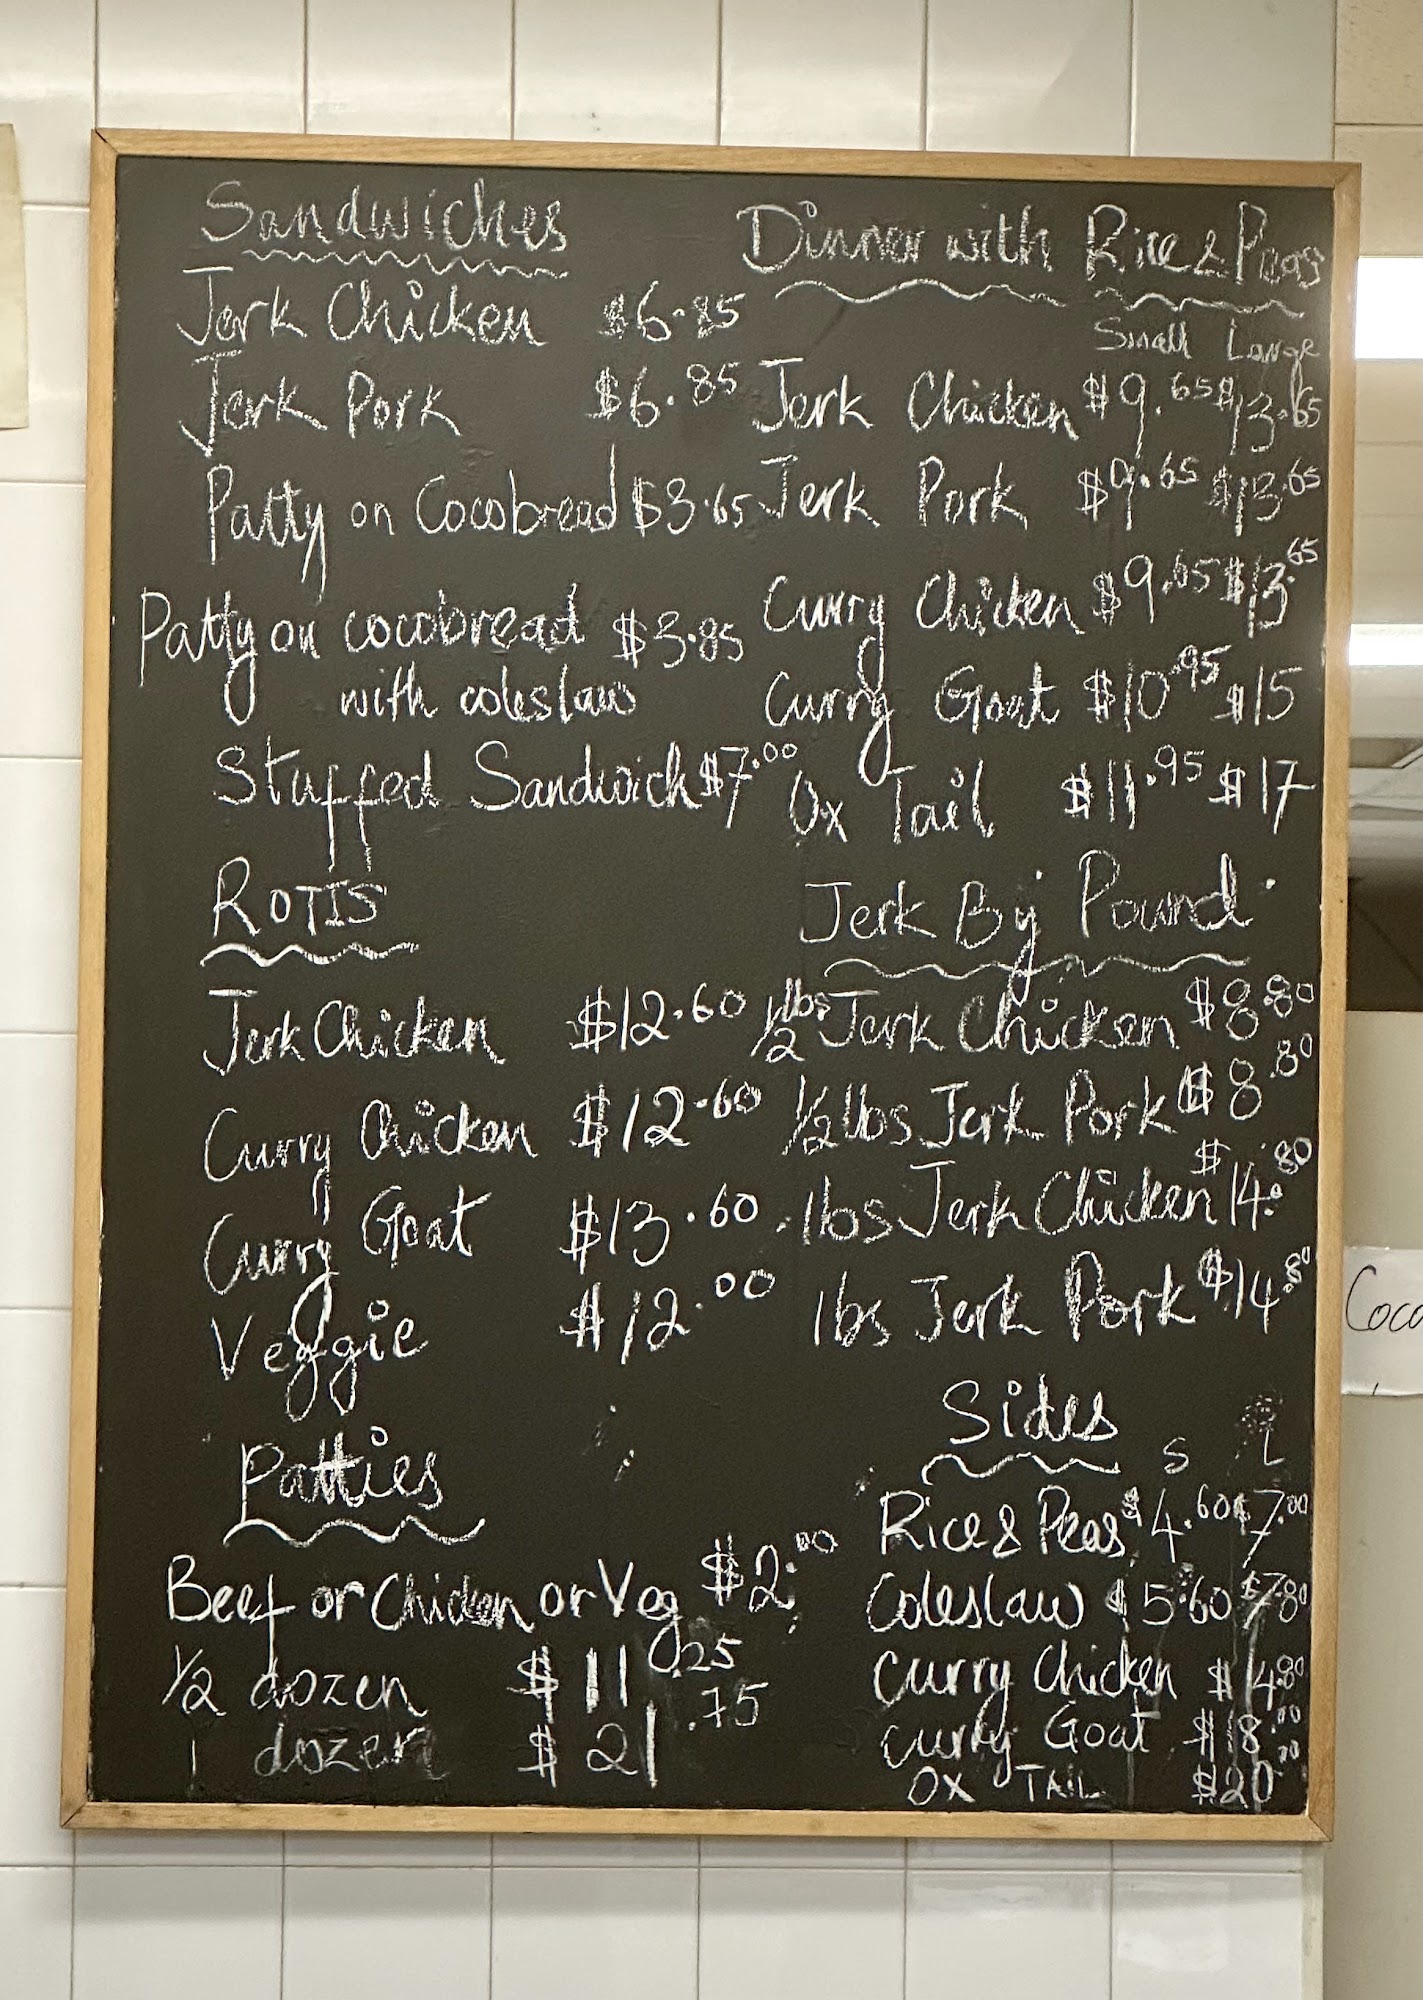 Sandwiches
Jerk Chicken $6.85
Jerk Pork $6.85
Patty on Cocobread $3.65
Patty on cocobread $3.85
with coleslaw
Stuffed Sandwich $7.00
ROTIS
Jerk Chicken $12.60
Curry Chicken $12.60
Curry Goat $13.60
Veggie $12.00
Patties
Beef or Chicken or Veg $2.00
1/2 dozen $11.25
1 dozen $21.75
Dinner with Rice & Peas
Small Large
Jerk Chicken $9.65 $13.65
Jerk Pork $9.65 $13.65
Curry Chicken $9.65 $13.65
Curry Goat $10.95 $15
Ox Tail $11.95 $17
Jerk By Pound
1/2 lbs Jerk Chicken $8.80
1/2 lbs Jerk Pork $8.80
1lbs Jerk Chicken $14.80
1lbs Jerk Pork $14.80
Sides
S L
Rice & Peas $4.60 $7.00
Coleslaw $5.60 $7.80
Curry Chicken $14.80
Curry Goat $18.00
OX TAIL $20.00